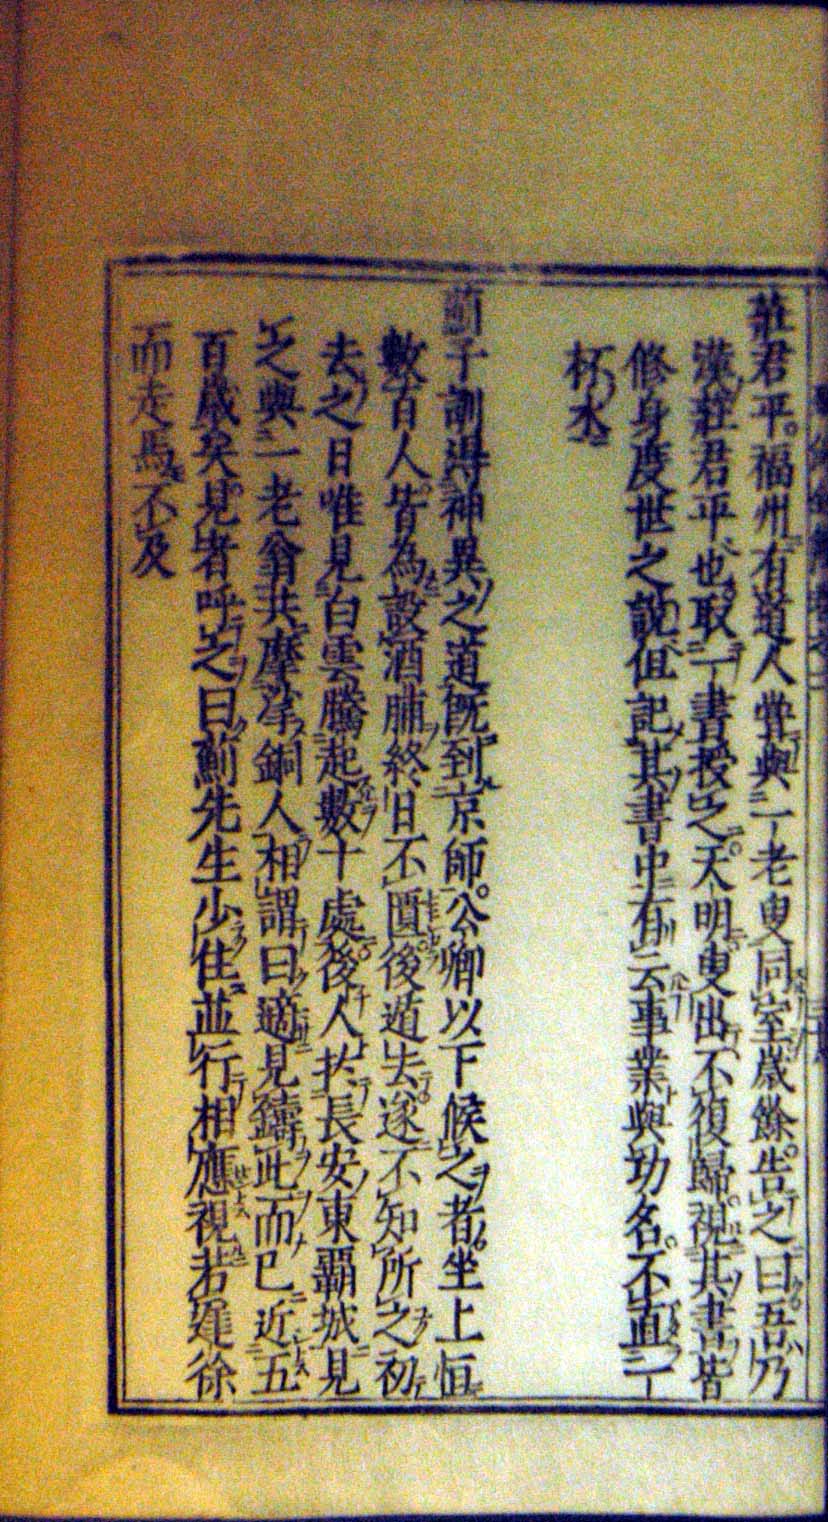 莊君平。福州有道人嘗與一老叟同室歲餘。告之曰吾乃
漢莊君平也取一書授之。天明叟出不復歸。視其書皆
修身度世之說但記其書中有云事業與功名。不直一
杯水
薊子訓得神異之道既到京師。公卿以下候之者。坐上恒
數百人。皆為設酒脯終日不匱後遁去。遂不知所之初
去之日唯見白雲騰起數十處。後人於長安東霸城見
之與一老翁共摩挲銅人相謂曰適見鑄此而已近五
百歲矣。見者呼之曰薊先生少住並行相應視若遲徐
而走馬不及